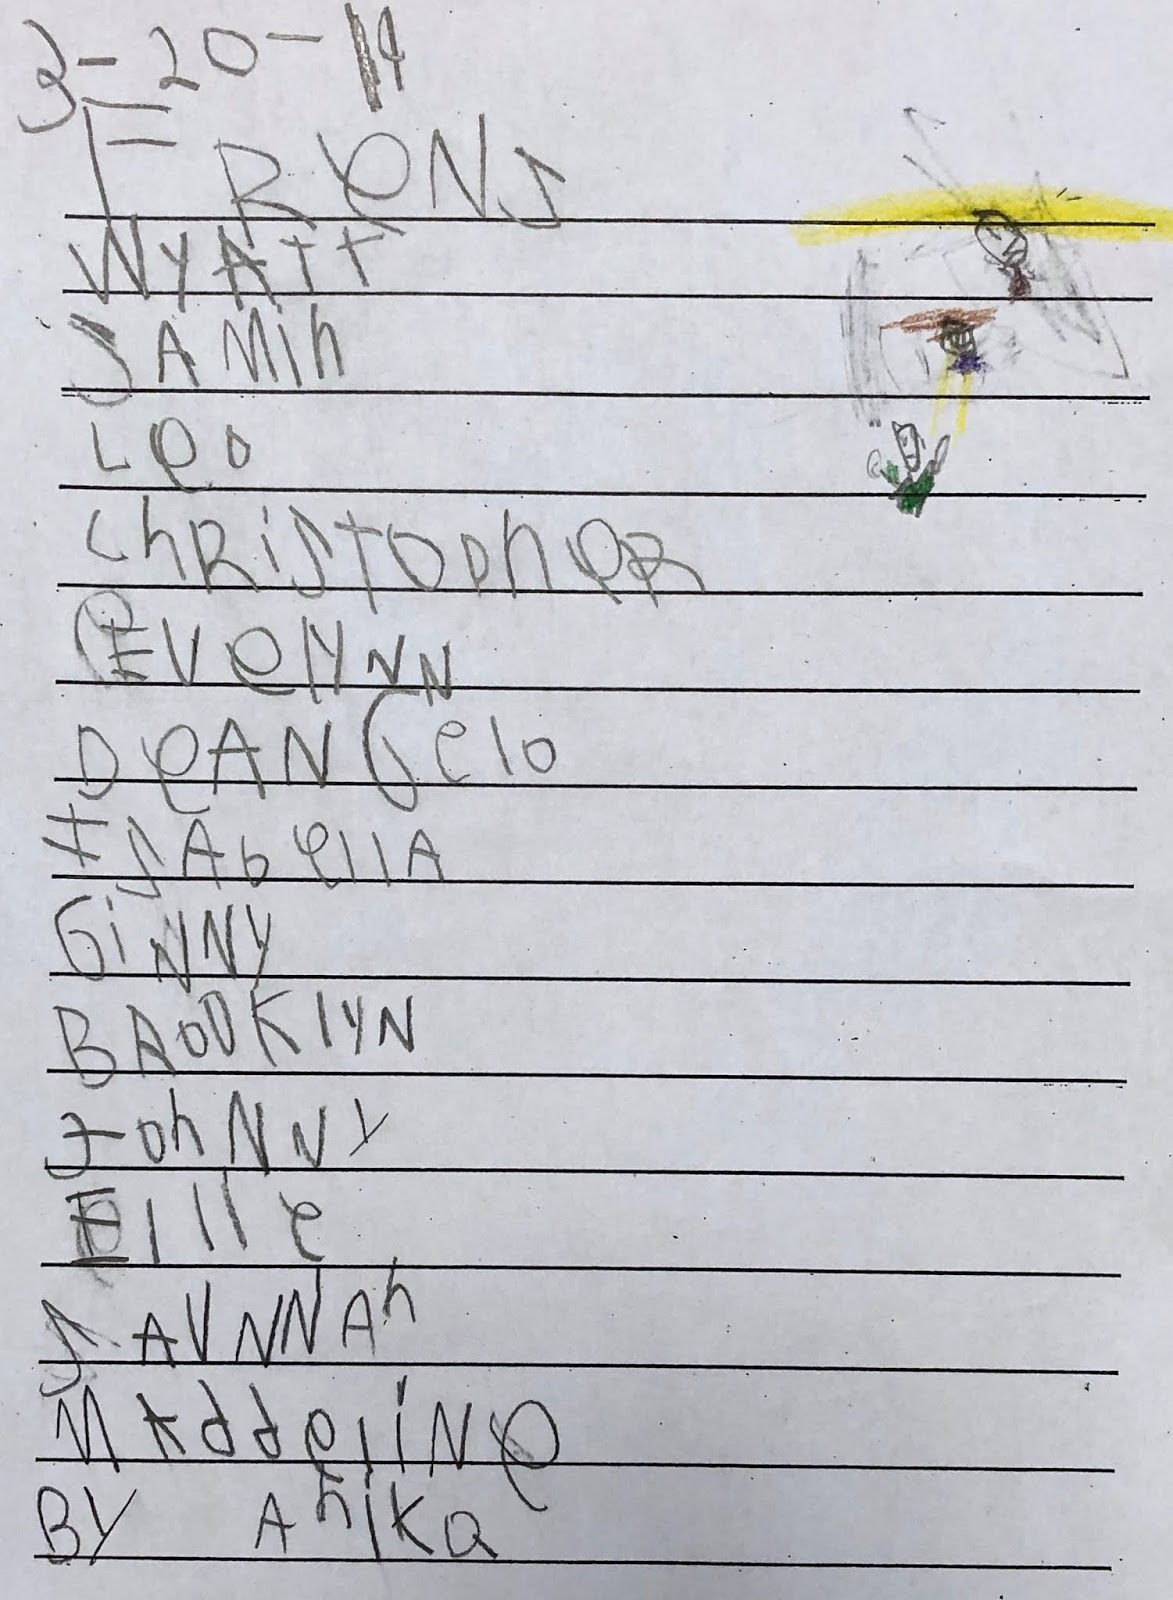 3-20-14
FReNS
WyAtt
SAMih
Leo
ChRiSTopheR
EVelYNN
DeANGelo
ISAbellA
GiNNY
BRooKlYN
JohNNY
Ellle
SAVNNAh
MAddeliNe
BY Anika